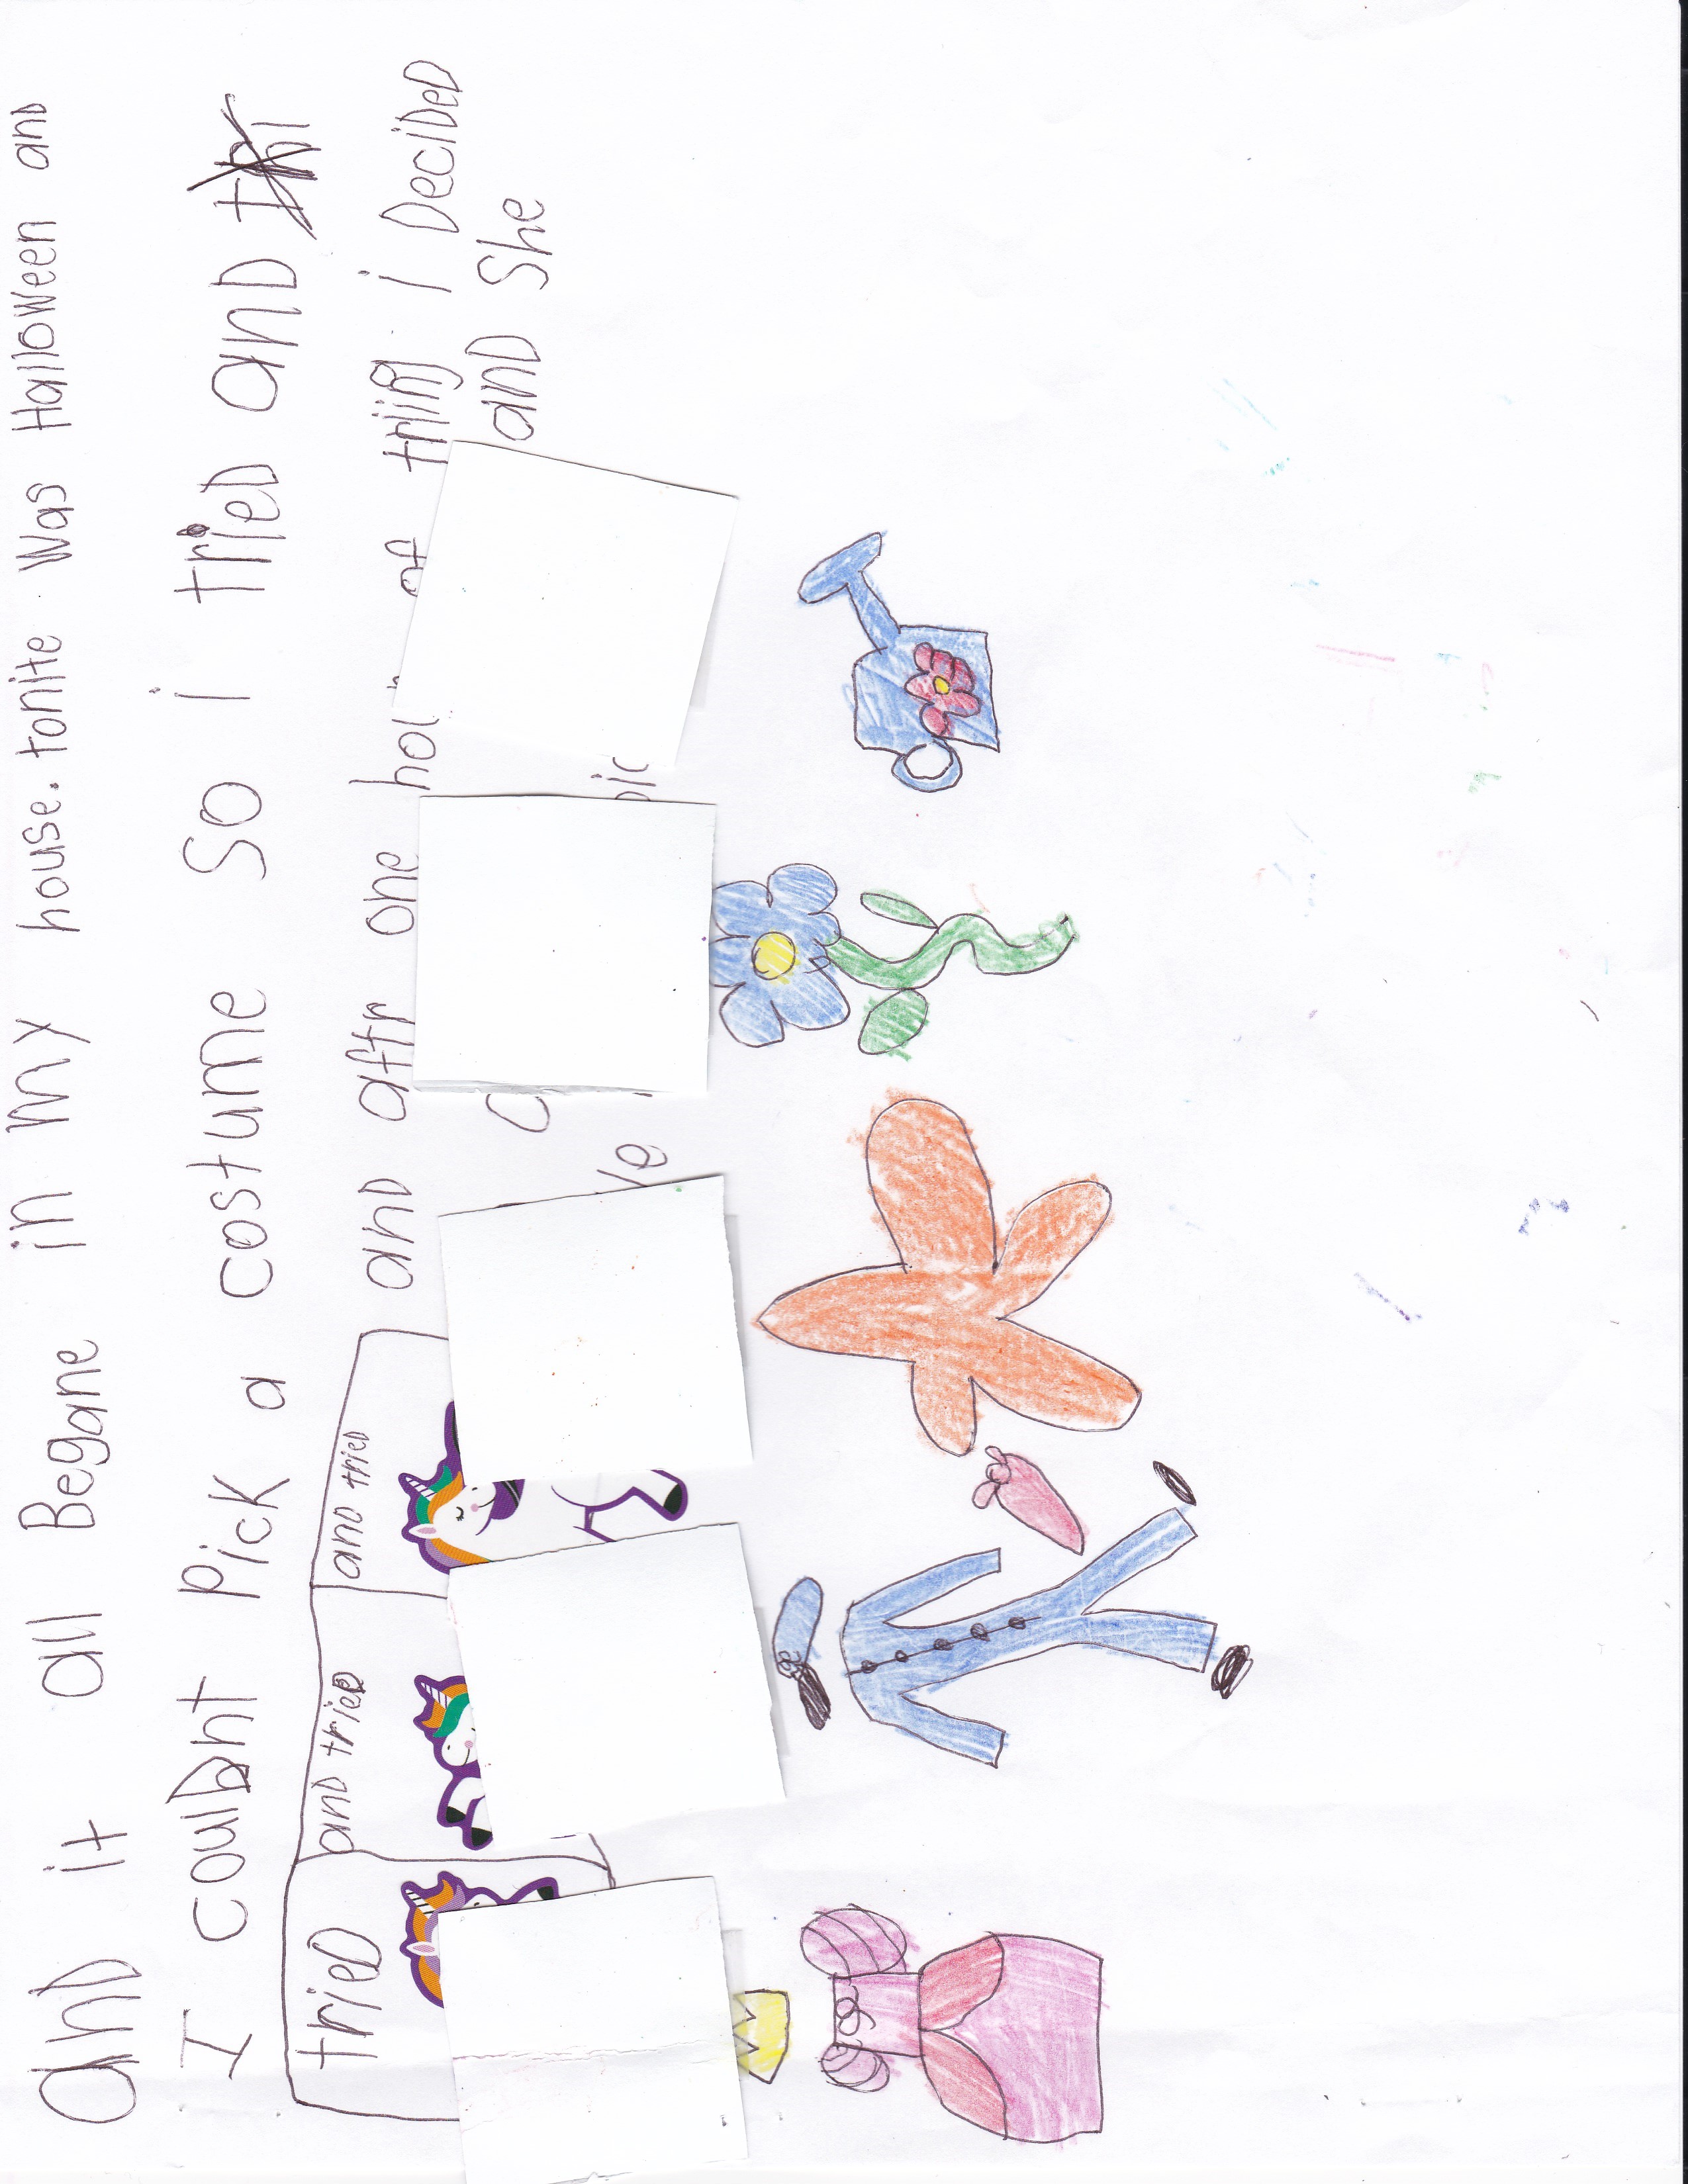 and it all Begane in my house. tonite Was Halloween and
I coulDnt Pick a costume so i trieD anD
trieD anD trieD anD trieD anD aftr one of triing i DeciDeD
anD She